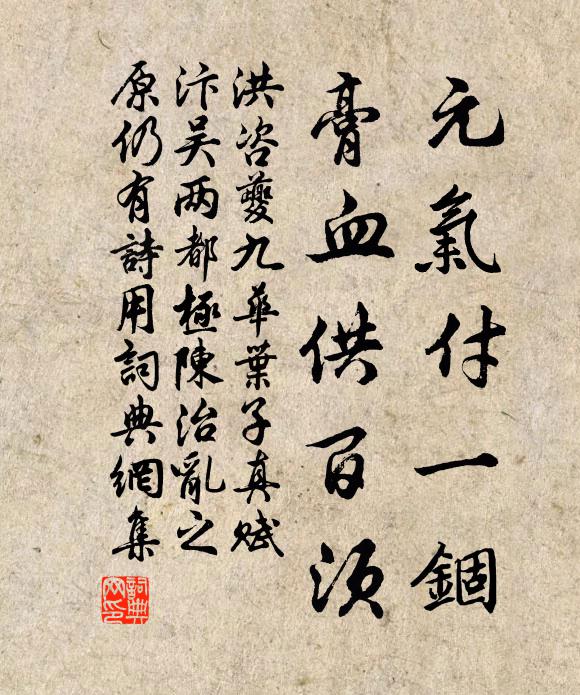 元氣付一錮
膏血供百須
洪咨夔九華葉子真賦
汴吴两都極陳治亂之
原仍有詩用詞典網集